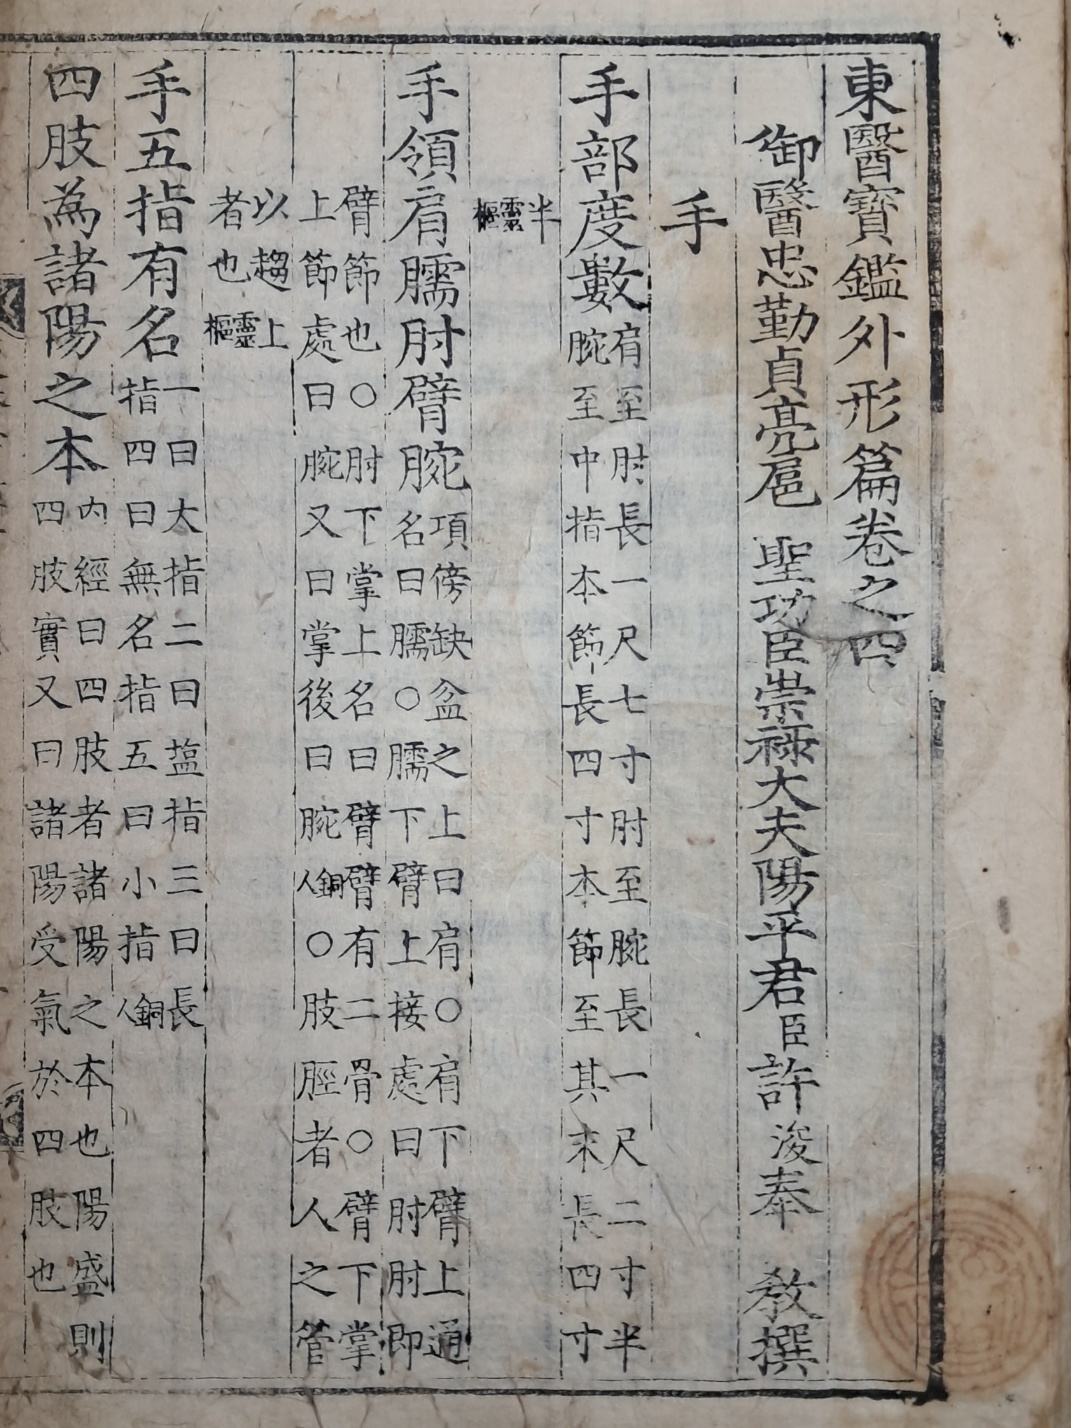 東醫寶鑑外形篇卷之四
御醫忠勤貞亮扈 聖功臣崇祿大夫陽平君臣許浚奉 敎撰
手
手部度數
肩至肘長一尺七寸肘至腕長一尺二寸半
腕至中指本節長四寸本節至其末長四寸
半靈樞
手領肩臑肘臂腕
項傍缺盆之上曰肩○肩下臂上通
名曰臑○臑下臂上接處曰肘肘即
臂節也○肘下掌上名曰臂臂有二骨○臂下掌
上節處曰腕又曰掌後曰腕銅人○肢脛者人之管
以趨上
者也靈樞
手五指有名
一曰太指二曰䀋指三曰長
指四曰無名指五曰小指銅人
四肢為諸陽之本
內經曰四肢者諸陽之本也陽盛則
四肢實又曰諸陽受氣於四肢也